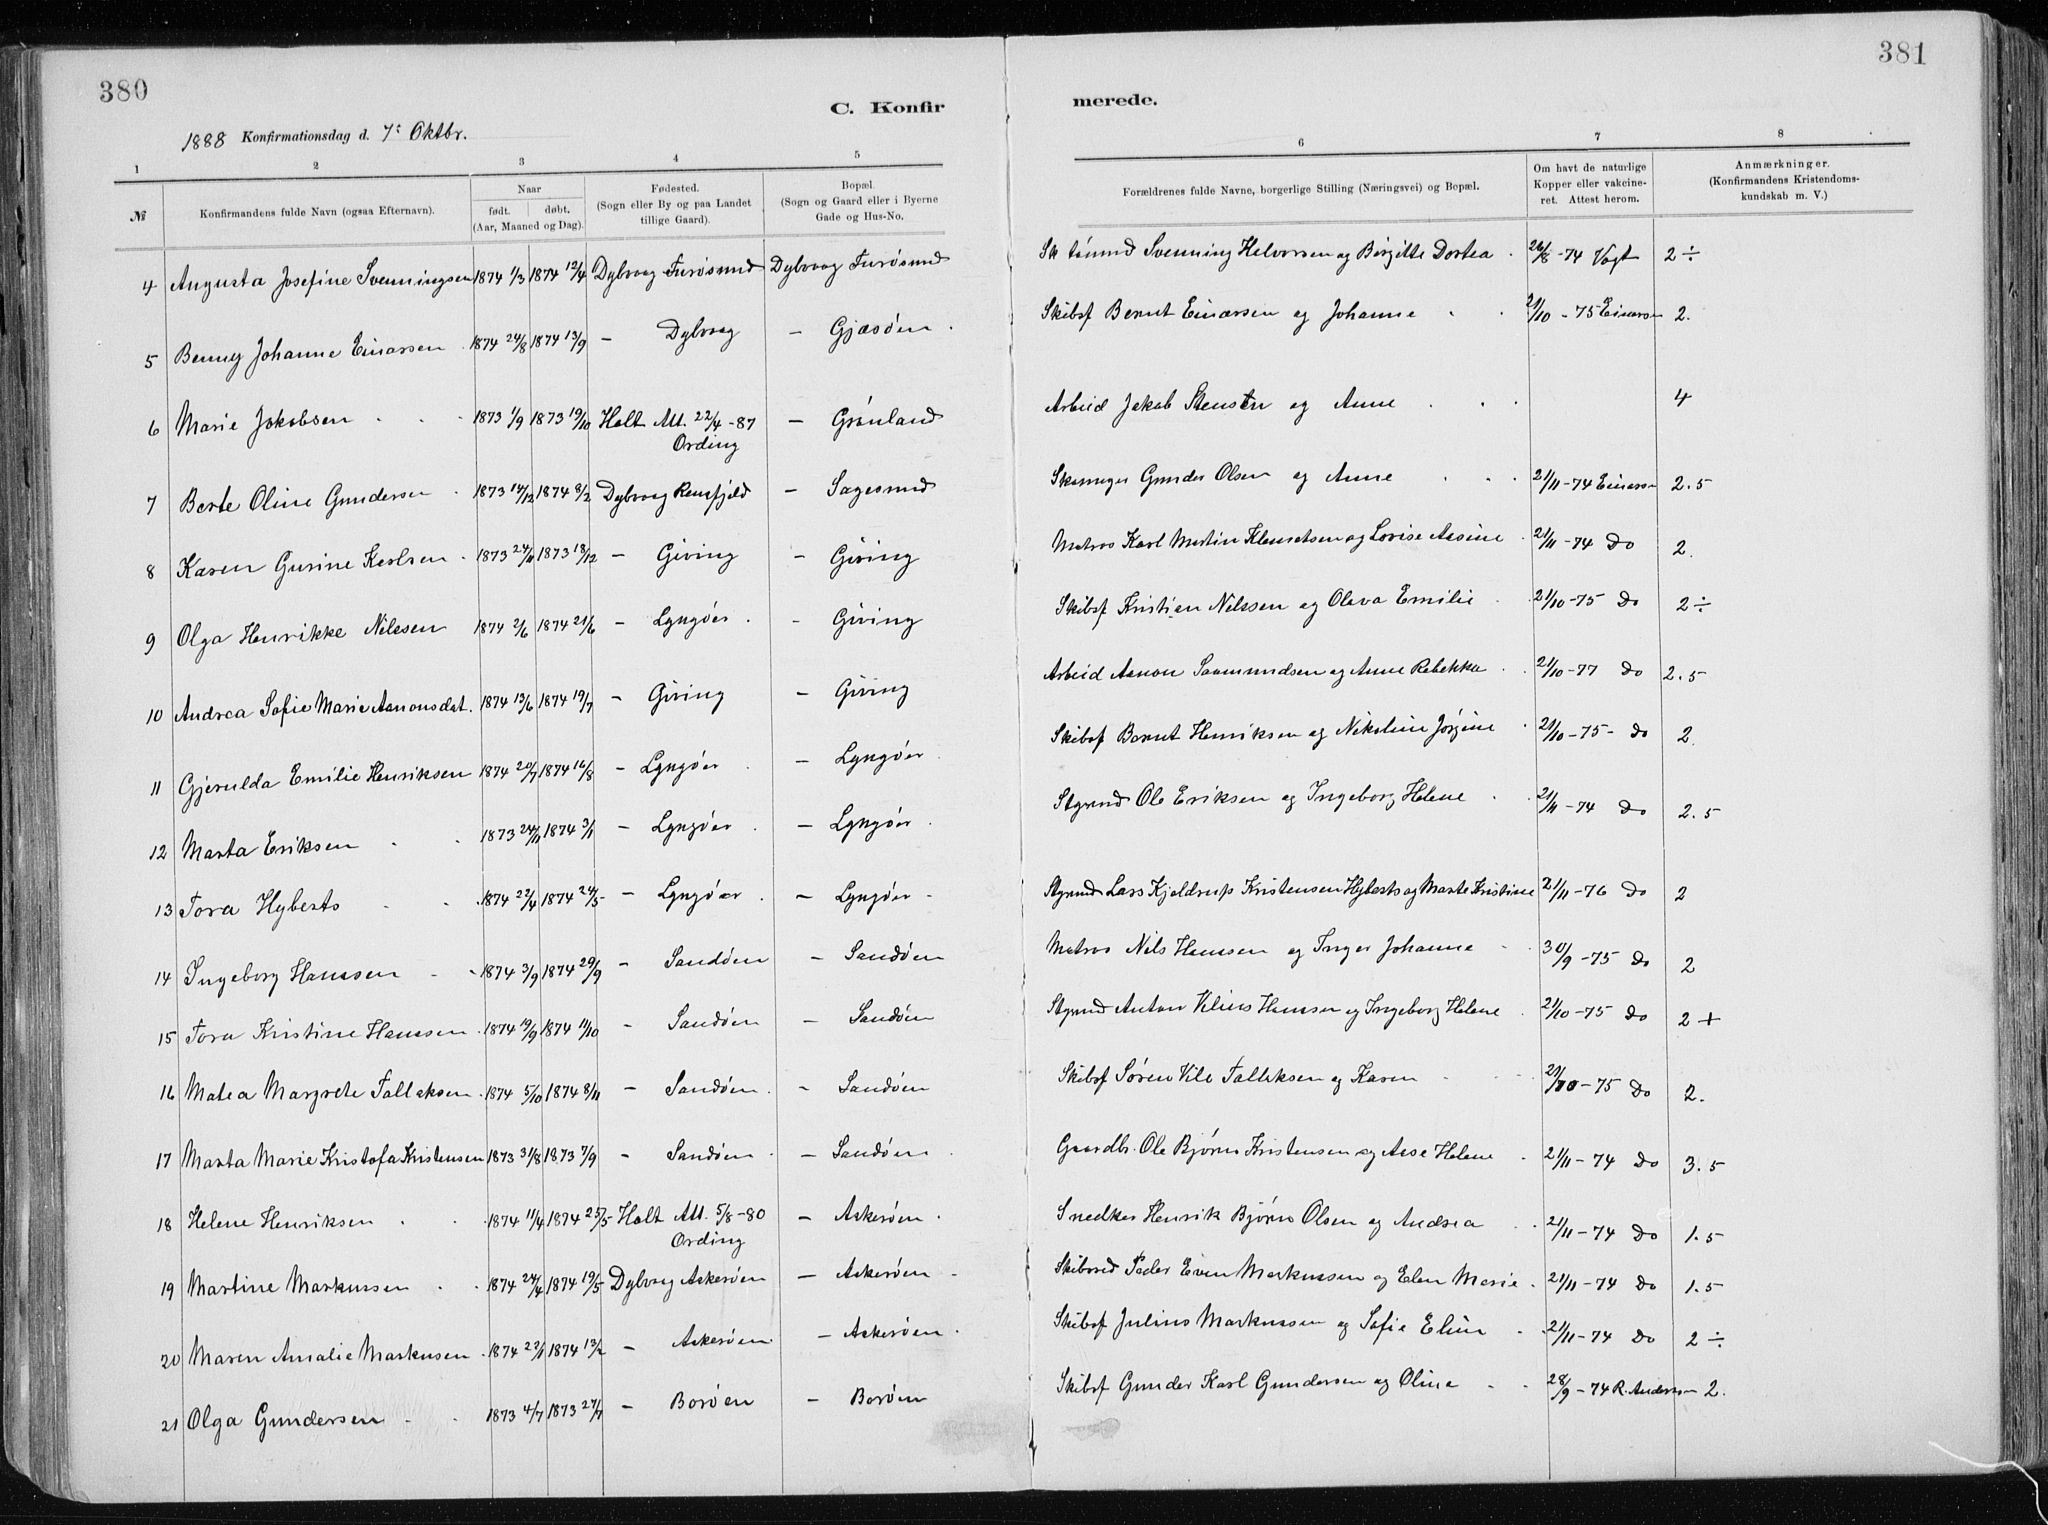 380
381
C. Konfir
merede.
1888 Konfirmationsdag d. 7de Oktbr.
1 2 3 4 5 6 7 8
№ Konfirmandens fulde Navn (ogsaa Efternavn). Naar født. døbt. (Aar, Maaned og Dag). Fødested. (Sogn eller By og paa Landet tillige Gaard). Bopæl. (Sogn og Gaard eller i Byerne Gade og Hus-No. Forældrenes fulde Navne, borgerlige Stilling (Næringsvei) og Bopæl. Om havt de naturlige Kopper eller vakcineret. Attest herom. Anmærkninger. (Konfirmandens Kristendomskundskab m. V.)
4 Augusta Josefine Svenningsen 1874 1/3 1874 12/4 Dybvaag Furøsund Dybvaag Furøsund Svenning Halvorsen og Birgitte Dortea 26/8 -74 Vogt 2 ÷
5 Benny Johanne Einarsen 1874 24/8 1874 13/9 – Dybvaag – Gjæsøen Skibsf Bernt Einarsen og Johanne 21/10 -75 Einarsen 2.
6 Marie Jakobsen 1873 1/9 1873 19/10 Holt Att. 22/4 -87 – Grønland Arbeid Jakob Stensen og Anne 4
Ording
7 Berte Oline Gundersen 1873 14/12 1874 8/2 Dybvaag – Sagesund Skomager Gunder Olsen og Anne 21/11 -74 Einarsen 2.5
8 Karen Gurine Karlsen 1873 24/11 1873 18/12 – Giving – Giving Matros Karl Martin Klemetsen og Lovise Aasine 21/11 -74 Do 2.
9 Olga Henrikke Nilssen 1874 2/6 1874 21/6 – Lyngøer – Giving Skibsf Kristian Nilssen og Olava Emilie 21/10 -75 Do 2 ÷
10 Andrea Sofie Marie Aanonsdat. 1874 13/6 1874 19/7 – Giving – Giving Arbeid Aanon Saamundsen og Anne Rebekka 21/10 -77 Do 2.5
11 Gjerulda Emilie Henriksen 1874 20/7 1874 16/8 – Lyngøer – Lyngøer Skibsf Bernt Henriksen og Nikoline Jørgine 21/10 -75 - Do 2.
12 Marta Eriksen 1873 24/11 1874 3/1 – Lyngøer – Lyngøer Styrmd Ole Eriksen og Ingeborg Helene 21/11 -74 Do 2.5
13 Tora Hyberts 1874 22/4 1874 24/5 – Lyngøer – Lyngøer Styrmd Lars Kjeldrup Kristensen Hyberts og Marte Kristine 21/11 -76 Do 2
14 Ingeborg Hanssen 1874 3/9 1874 29/9 – Sandøen – Sandøen Matros Nils Hanssen og Inger Johanne 30/9 -75 Do 2
15 Tora Kristine Hanssen 1874 19/9 1874 11/10 – Sandøen – Sandøen Styrmd Anton Hanssen og Ingeborg Helene 21/10 -75 Do 2 +
16 Matea Margrete Tallaksen 1874 5/10 1874 8/11 – Sandøen – Sandøen Skibsf Søren Tallaksen og Karen 21/10 -75 Do 2.
17 Marta Marie Kristofa Kristensen 1873 31/8 1873 7/9 – Sandøen – Sandøen Gaardbr. Ole Bjørn Kristensen og Aase Helene 21/11 -74 Do 3.5
18 Helene Henriksen 1874 11/4 1874 25/5 Holt Att. 5/8 -80 – Askerøen Snedker Henrik Bjørn Olsen og Andrea 21/11 -74 Do 1.5
Ording
19 Martine Markussen 1874 24/4 1874 19/5 Dybvaag Askerøen – Askerøen Skibsred Peder Even Markussen og Elen Marie 21/11 -74 Do 1.5
20 Maren Amalie Markusen 1874 22/1 1874 13/2 – Askerøen – Askerøen Skibsf Julius Markussen og Sofie Elin 21/11 -74 Do 2 ÷
21 Olga Gundersen 1873 4/7 1873 27/7 – Borøen – Borøen Skibsf Gunder Karl Gundersen og Oline 28/9 -74 R. Andersen 2.